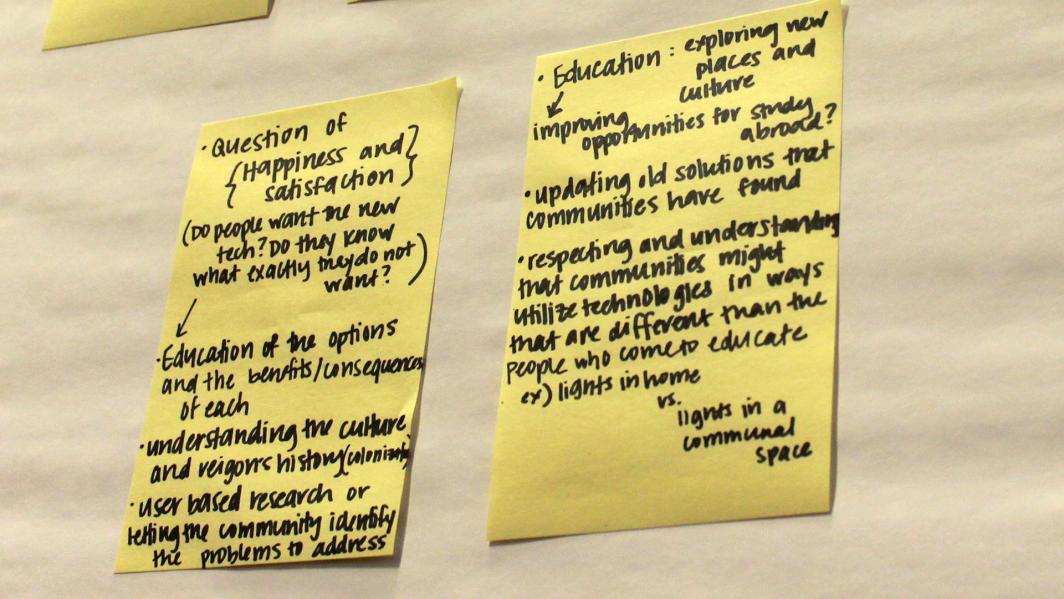 · Question of
{Happiness and
satisfaction}
(Do people want the new
tech? Do they know
what exactly they do not
want?)
↓
· Education of the options
and the benefits/consequences
of each
· understanding the culture
and reigon's history
· user based research or
letting the community identify
the problems to address
· Education : exploring new
places and
culture
↓
improving
opportunities for study
abroad?
· updating old solutions that
communities have found
· respecting and understanding
that communities might
utilize technologies in ways
that are different than the
people who come to educate
ex) lights in home
vs.
lights in a
communal
space